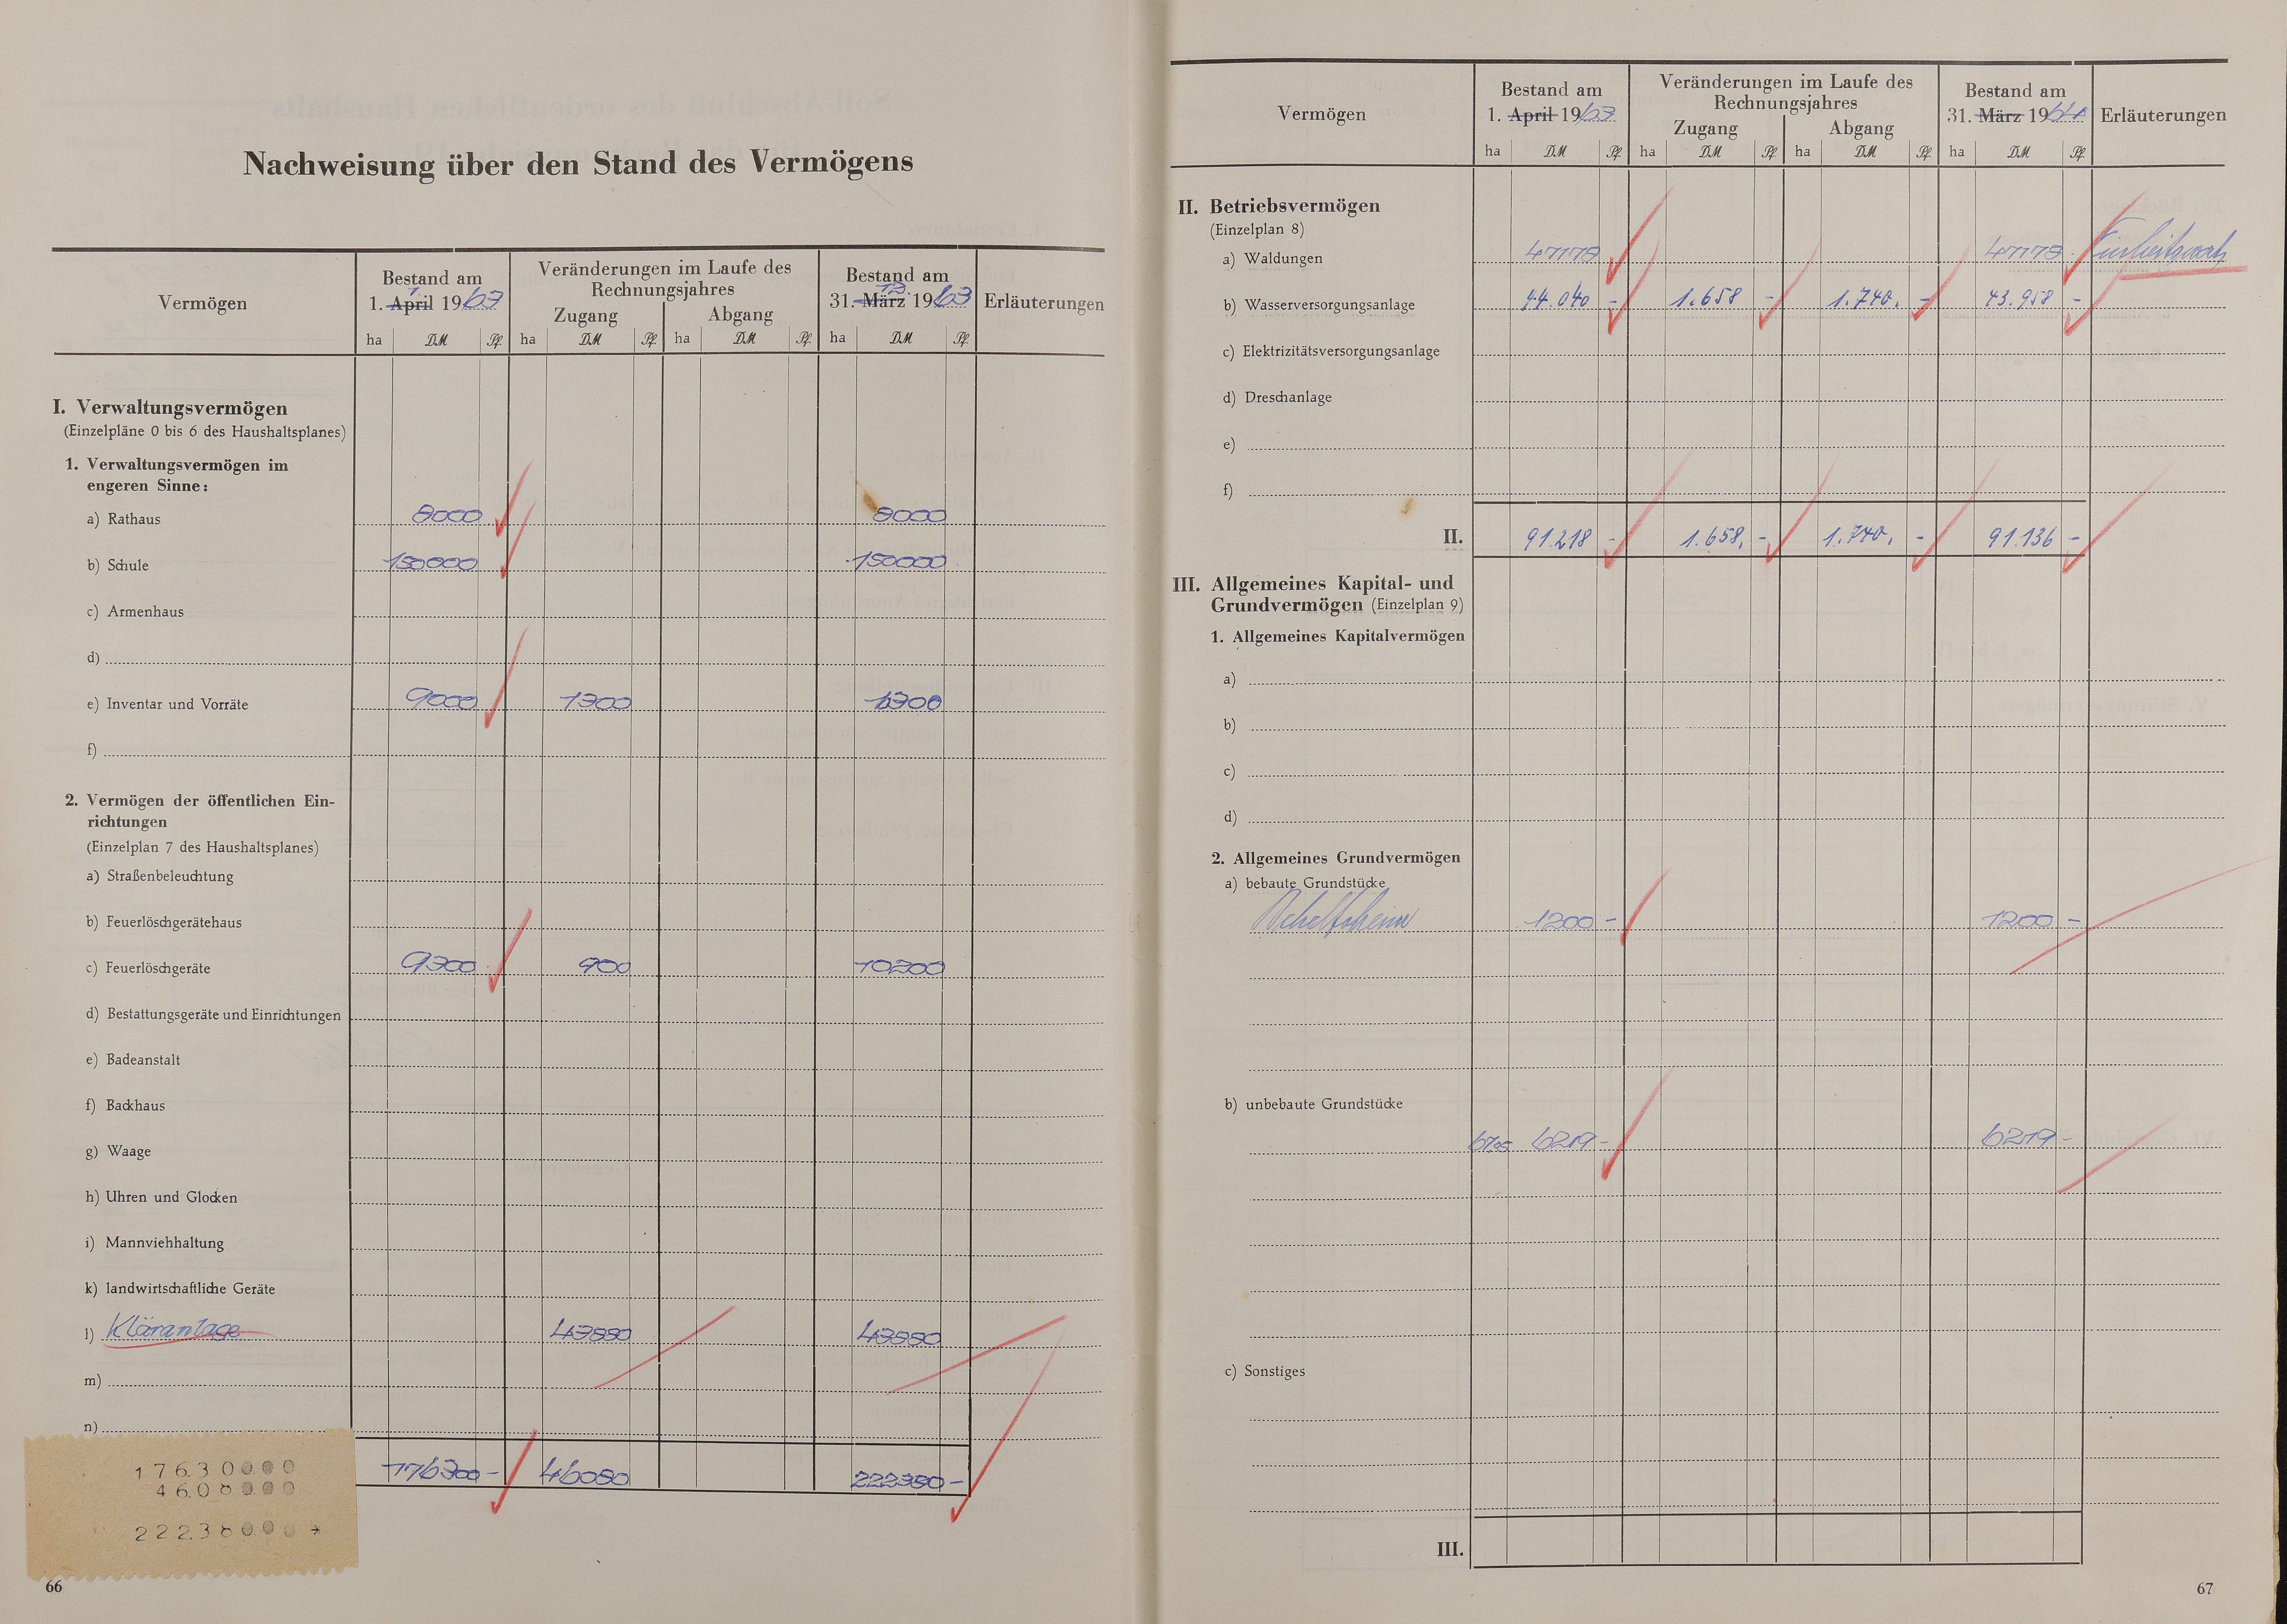 Nachweisung über den Stand des Vermögens
Vermögen
Bestand am
1. April 1963
Veränderungen im Laufe des
Rechnungsjahres
Zugang Abgang
Bestand am
12.
31. März 1963
Erläuterungen
ha DM Pf. ha DM Pf. ha DM Pf. ha DM Pf.
I. Verwaltungsvermögen
(Einzelpläne 0 bis 6 des Haushaltsplanes)
1. Verwaltungsvermögen im
engeren Sinne:
a) Rathaus 8000 8000
b) Schule 150000 150000
c) Armenhaus
d)
e) Inventar und Vorräte 9000 1300
f)
2. Vermögen der öffentlichen Ein-
richtungen
(Einzelplan 7 des Haushaltsplanes)
a) Straßenbeleuchtung
b) Feuerlöschgerätehaus
c) Feuerlöschgeräte 9300 900 10200
d) Bestattungsgeräte und Einrichtungen
e) Badeanstalt
f) Backhaus
g) Waage
h) Uhren und Glocken
i) Mannviehhaltung
k) landwirtschaftliche Geräte
l) Kläranlage 43880 43880
m)
n)
176300- 46080 222380-
1 7 6.3 0 0.0 0
4 6.0 8 0.0 0
2 2 2.3 8 0.0 0
66
Vermögen
Bestand am
1. April 1963
Veränderungen im Laufe des
Rechnungsjahres
Zugang Abgang
Bestand am
31. März 19
Erläuterungen
ha DM Pf. ha DM Pf. ha DM Pf. ha DM Pf.
II. Betriebsvermögen
(Einzelplan 8)
a) Waldungen 47178 47178 - Einheitswert
b) Wasserversorgungsanlage 44.040 - 1.658 - 1.740. - 43.958 -
c) Elektrizitätsversorgungsanlage
d) Dreschanlage
e)
f)
II. 91218 - 1.658, - 1.740, - 91.136 -
III. Allgemeines Kapital- und
Grundvermögen (Einzelplan 9)
1. Allgemeines Kapitalvermögen
a)
b)
c)
d)
2. Allgemeines Grundvermögen
a) bebaute Grundstücke
1200 - 1200 -
b) unbebaute Grundstücke
6219 - 6219 -
c) Sonstiges
III.
67